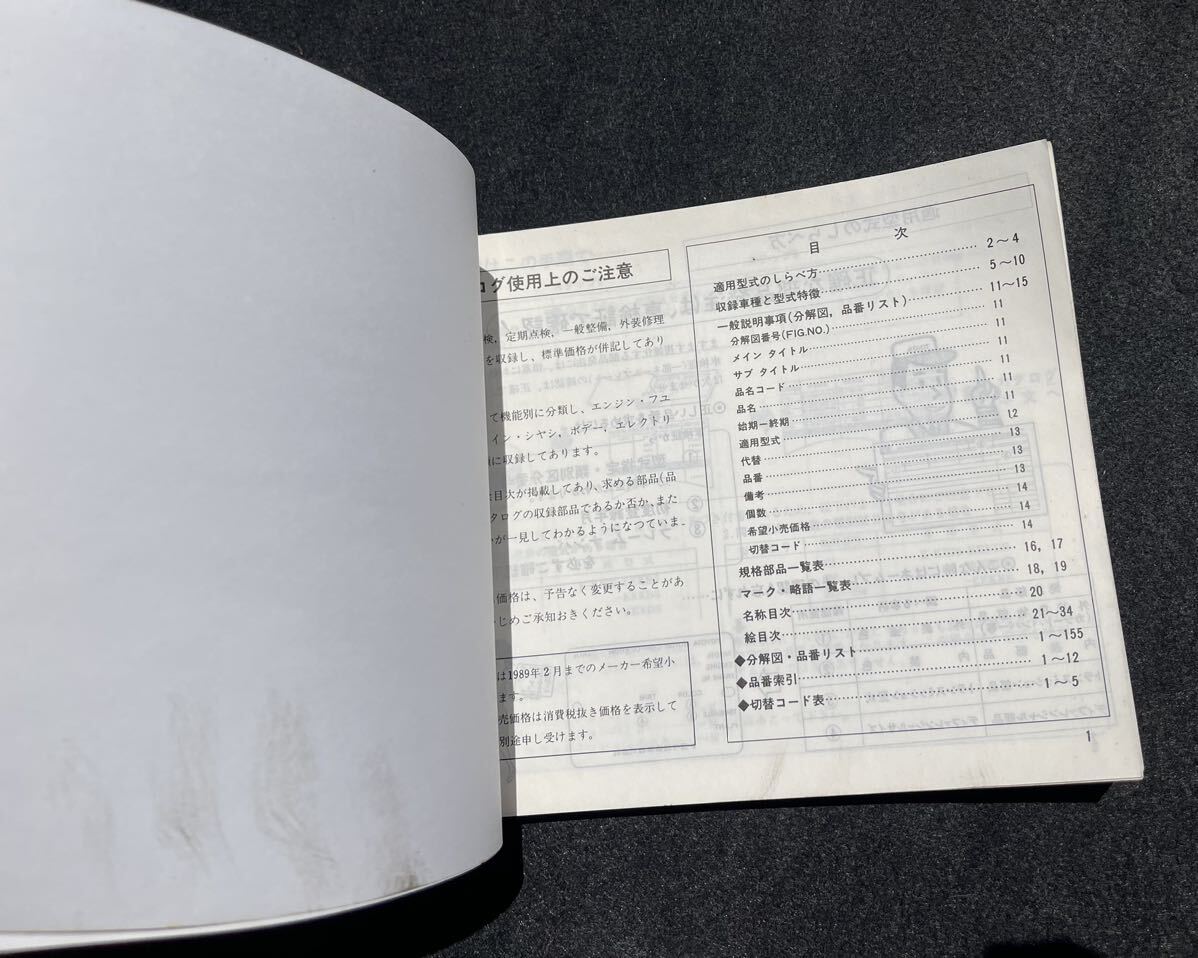 ログ使用上のご注意
検, 定期点検, 一般整備, 外装修理
を収録し、標準価格が併記してあり
て機能別に分類し、エンジン・フユ
イン・シヤシ, ボデー, エレクトリ
に収録してあります。
目次が掲載してあり、求める部品(品
タログの収録部品であるか否か、また
が一見してわかるようになつていま
価格は、予告なく変更することがあ
じめご承知おきください。
は1989年2月までのメーカー希望小
ます。
売価格は消費税抜き価格を表示して
別途申し受けます。
目 次
適用型式のしらべ方 2〜4
収録車種と型式特徴 5〜10
一般説明事項(分解図, 品番リスト) 11〜15
分解図番号(FIG.NO.) 11
メイン タイトル 11
サブ タイトル 11
品名コード 11
品名 11
始期ー終期 11
適用型式 12
代替 13
品番 13
備考 13
個数 14
希望小売価格 14
切替コード 14
規格部品一覧表 16, 17
マーク・略語一覧表 18, 19
名称目次 20
絵目次 21〜34
◆分解図・品番リスト 1〜155
◆品番索引 1〜12
◆切替コード表 1〜5
1